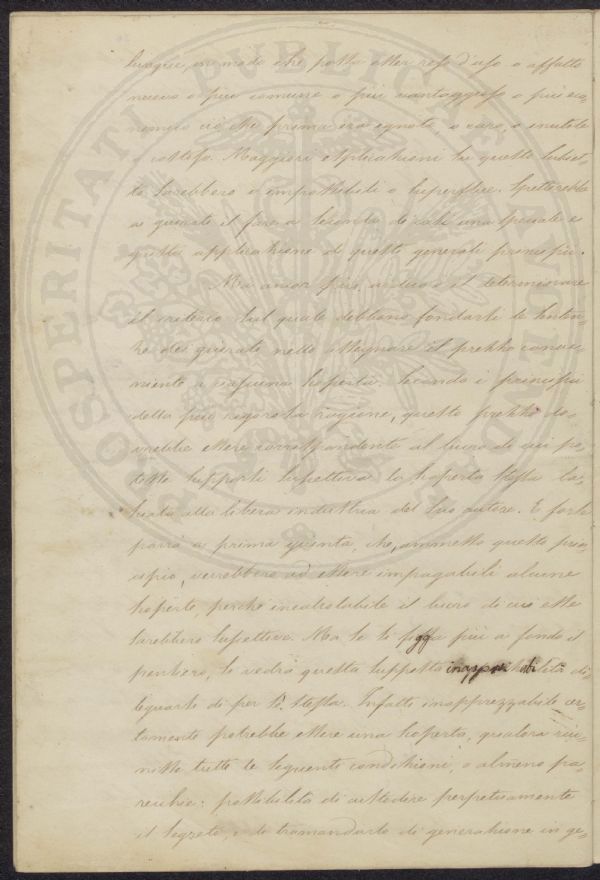 in modo che possa esser reso d'uso o affatto
nuovo o più comune o più vantaggioso o più eco=
nomico ciò che prima era ignoto, o raro, o inutile
o costoso. Maggiori esplicazioni su questo subiet=
to sarebbero o impossibili o superflue. Spetterebbe
ai giurati il fare a seconda di casi una speciale e
giusta applicazione di questi generali principii.
Ma ancor più arduo è il determinare
il criterio sul quale debbano fondarsi le senten=
ze dei giurati nello assegnare il prezzo conve=
niente a ciascuna scoperta. Secondo i principii
della più rigorosa ragione, questo prezzo do=
vrebbe essere corrispondente al lucro di cui po=
tesse supporsi suscettiva la scoperta stessa la=
sciata alla libera industria del suo autore. E forse
parrà a prima giunta, che, ammesso questo prin=
cipio, verrebbero ad essere impagabili alcune
scoperte, perché incalcolabile il lucro di cui esse
sarebbero suscettive. Ma se si figga più a fondo il
pensiero, si vedrà questa supposta inapprezzabilità di=
leguarsi di per sé stessa. Infatti inapprezzabile cer=
tamente potrebbe essere una scoperta, qualora riu=
nisse tutte le seguenti condizioni, o almeno pa=
recchie: possibilità di custodire perpetuamente
il segreto, e di tramandarlo di generazione in ge=
PROSPERITATI PUBLICAE